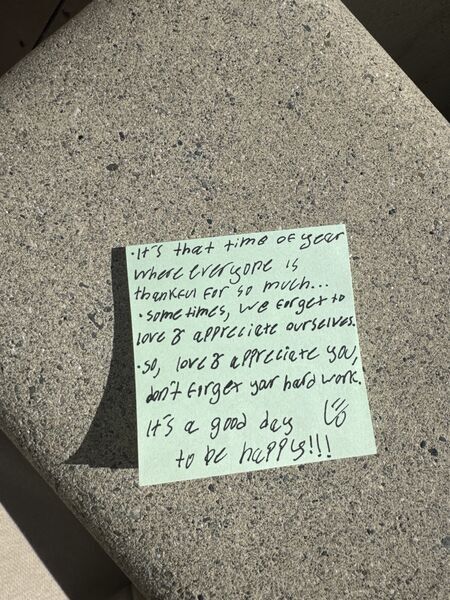 ·It's that time of year
where everyone is
thankful for so much...
·sometimes, we forget to
love & appreciate ourselves.
·so, love & appreciate you,
don't forget your hard work.
It's a good day
to be happy!!!